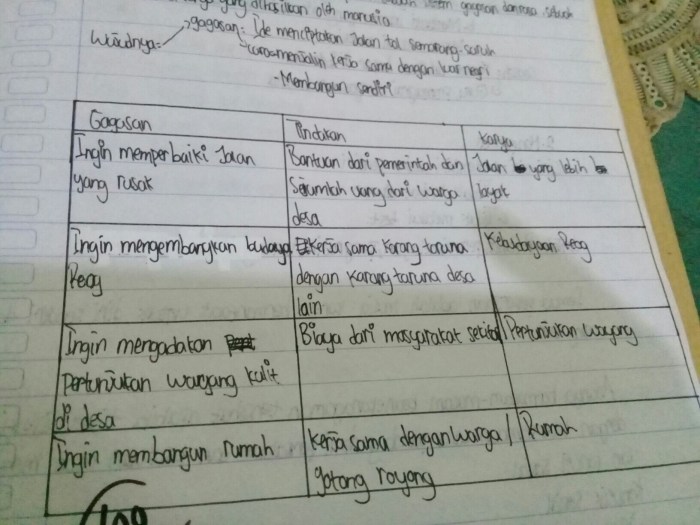 yang dihasilkan oleh manusia
Wujudnya: gagasan: Ide menciptakan Jalan tol semarang-suruh
cara=menjalin kerja sama dengan luar negri
-Membangun sendiri
Gagasan Tindakan Karya
Ingin memperbaiki Jalan Bantuan dari pemerintah dan Jalan yang lebih
yang rusak Sejumlah uang dari warga layak
desa
Ingin mengembangkan budaya Kerja sama Karang taruna Kebudayaan Reog
Reog dengan Karang taruna desa
lain
Ingin mengadakan Biaya dari masyarakat sekitar Pertunjukan wayang
Pertunjukan wayang kulit
di desa
Ingin membangun rumah Kerja sama dengan warga / Rumah
gotong royong
100